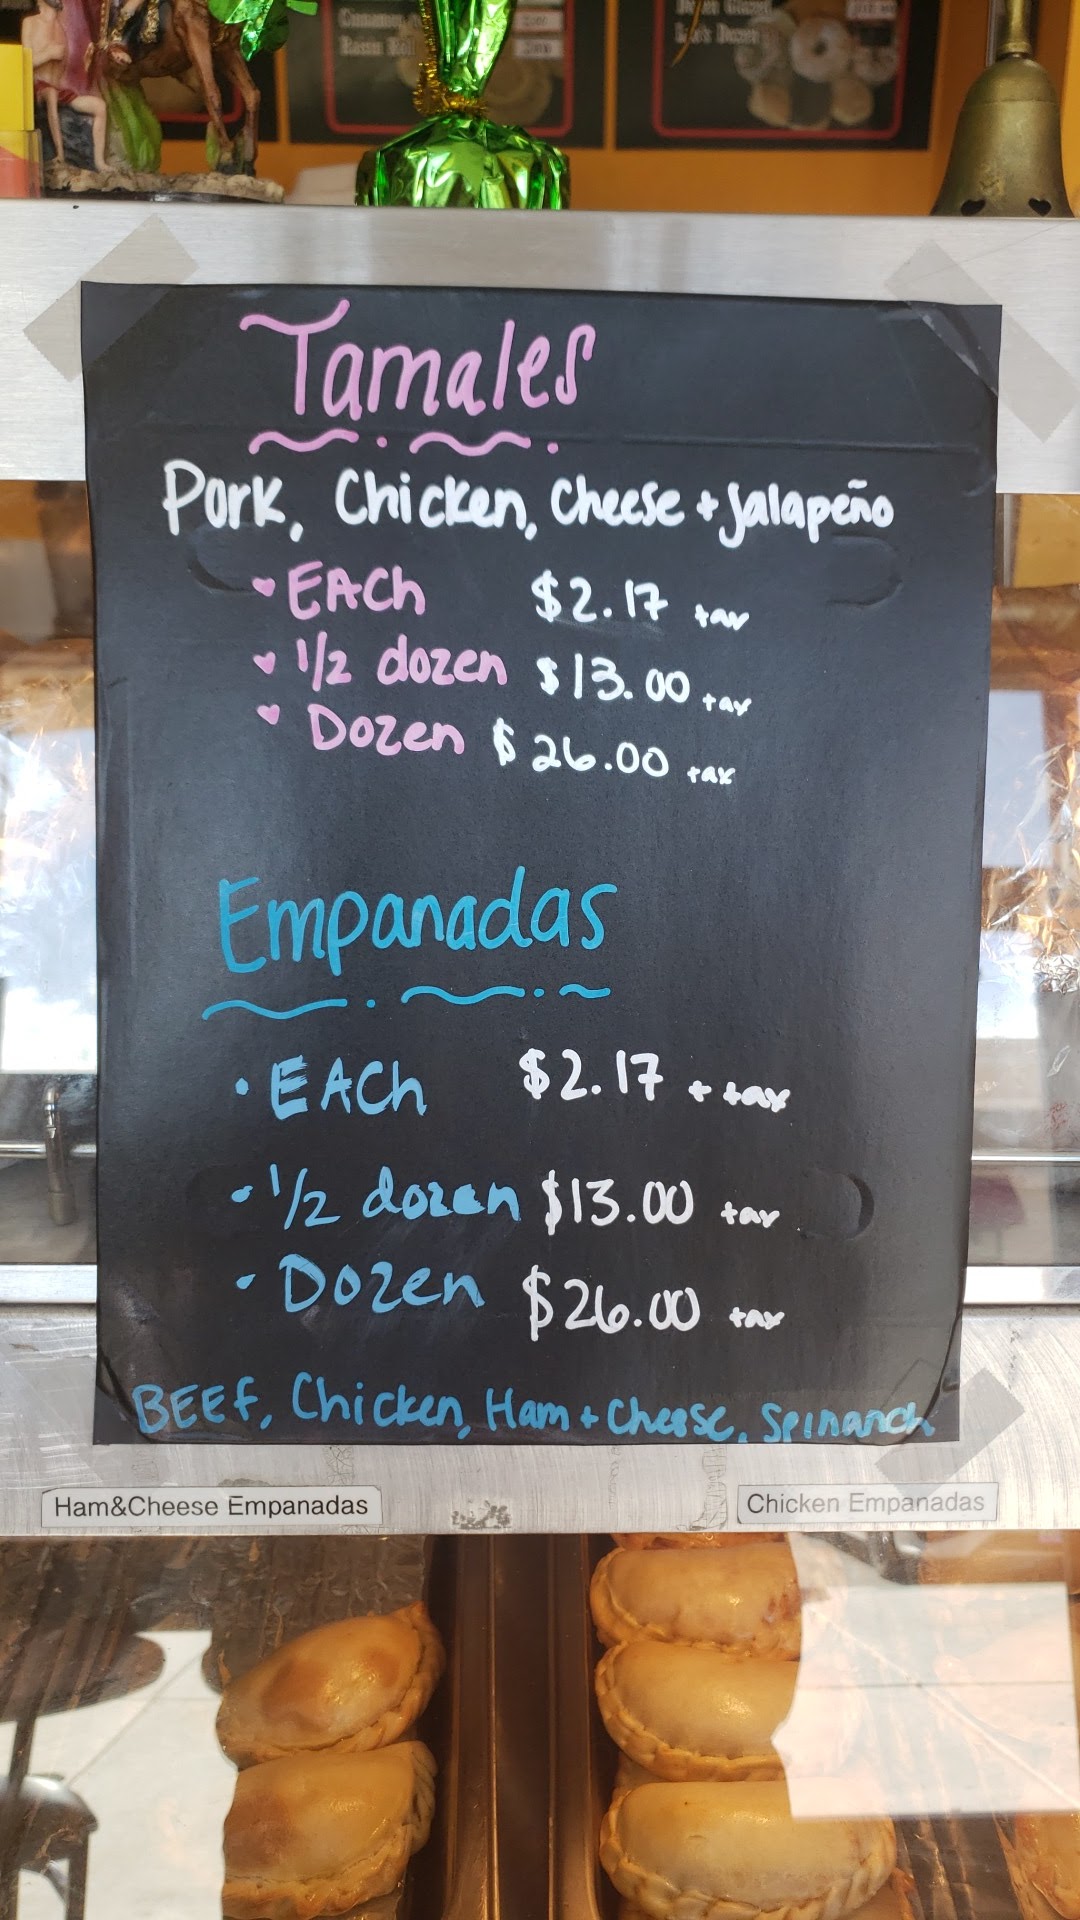 Raisin Roll
Tamales
Pork, Chicken, Cheese + Jalapeño
EACh $2.17 tax
1/2 dozen $13.00 tax
Dozen $26.00 tax
Empanadas
• EACh $2.17 + tax
• 1/2 dozen $13.00 tax
• Dozen $26.00 tax
BEEf, Chicken, Ham + Cheese, Spinanch
Ham&Cheese Empanadas
Chicken Empanadas